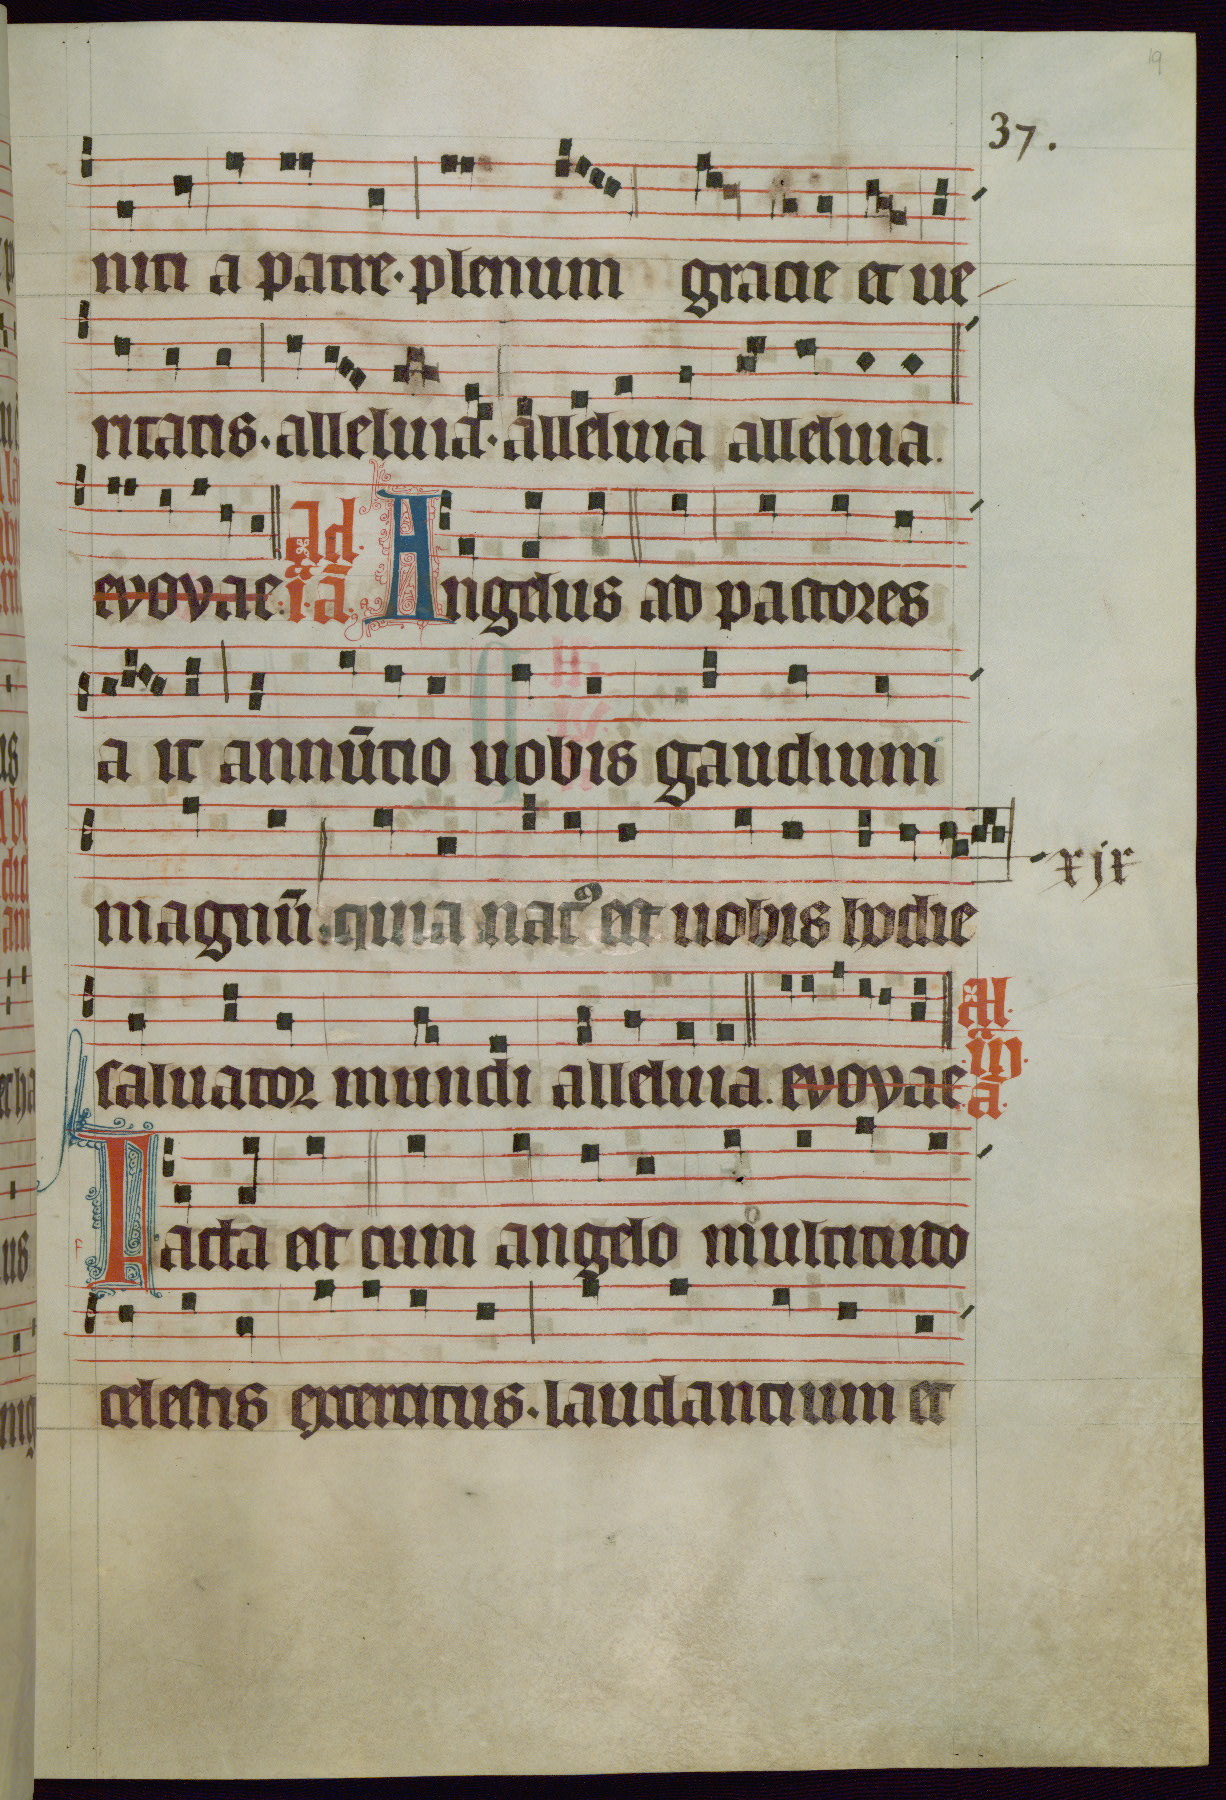 19
37.
niti a patre · plenum gracie et ue
ritatis · alleluia · alleluia alleluia.
evovae : Ad · i · ā · Angelus ad pastores
a it annūtio uobis gaudium
magnū · quia nat⁹ est uobis hodie
xix
saluator mundi alleluia. evovae Al · iii · ā ·
Facta est cum angelo multitudo
celestis exercitus · laudantium et